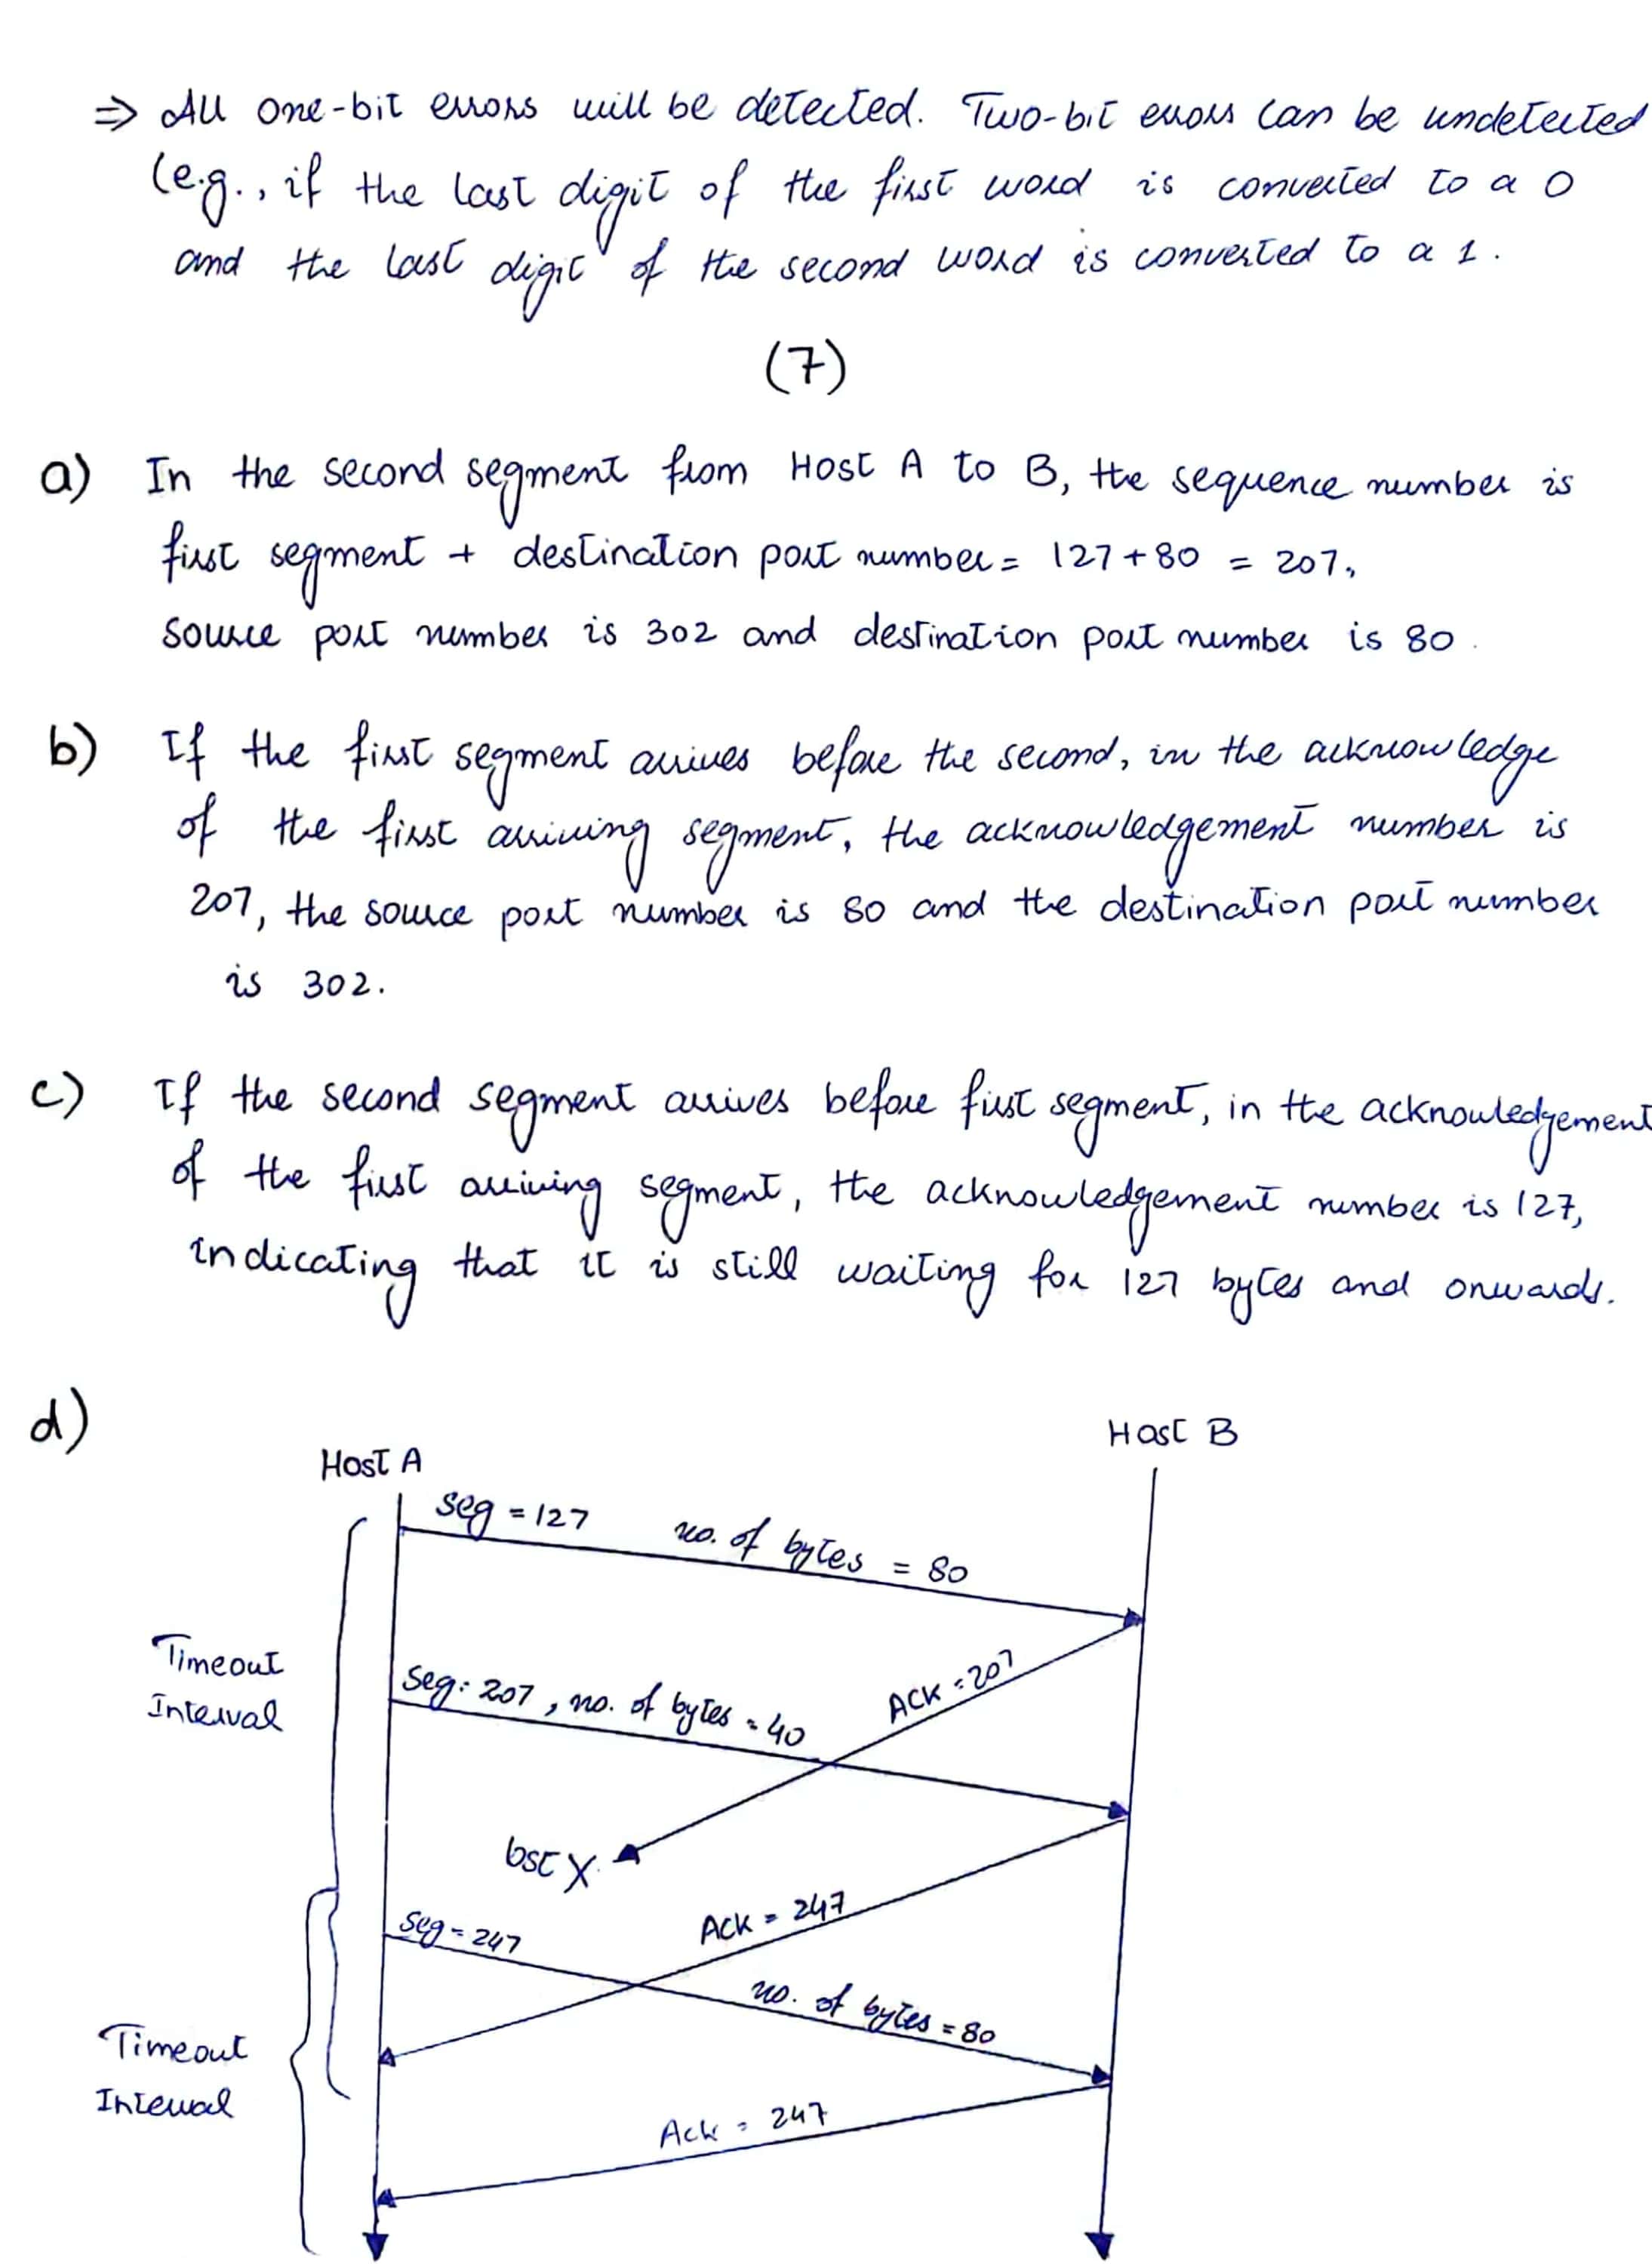 ⇒ All one-bit errors will be detected. Two-bit errors can be undetected
(e.g., if the last digit of the first word is converted to a 0
and the last digit of the second word is converted to a 1.
(7)
a) In the second segment from Host A to B, the sequence number is
first segment + destination port number = 127 + 80 = 207,
source port number is 302 and destination port number is 80.
b) If the first segment arrives before the second, in the acknowledge
of the first arriving segment, the acknowledgement number is
207, the source port number is 80 and the destination port number
is 302.
c) If the second segment arrives before first segment, in the acknowledgement
of the first arriving segment, the acknowledgement number is 127,
indicating that it is still waiting for 127 bytes and onwards.
d)
Host A
Host B
Seg = 127 no. of bytes = 80
Timeout
Interval
Seg: 207, no. of bytes = 40
ACK = 207
lost X
Seg = 247
ACK = 247
no. of bytes = 80
Timeout
Interval
Ack = 247